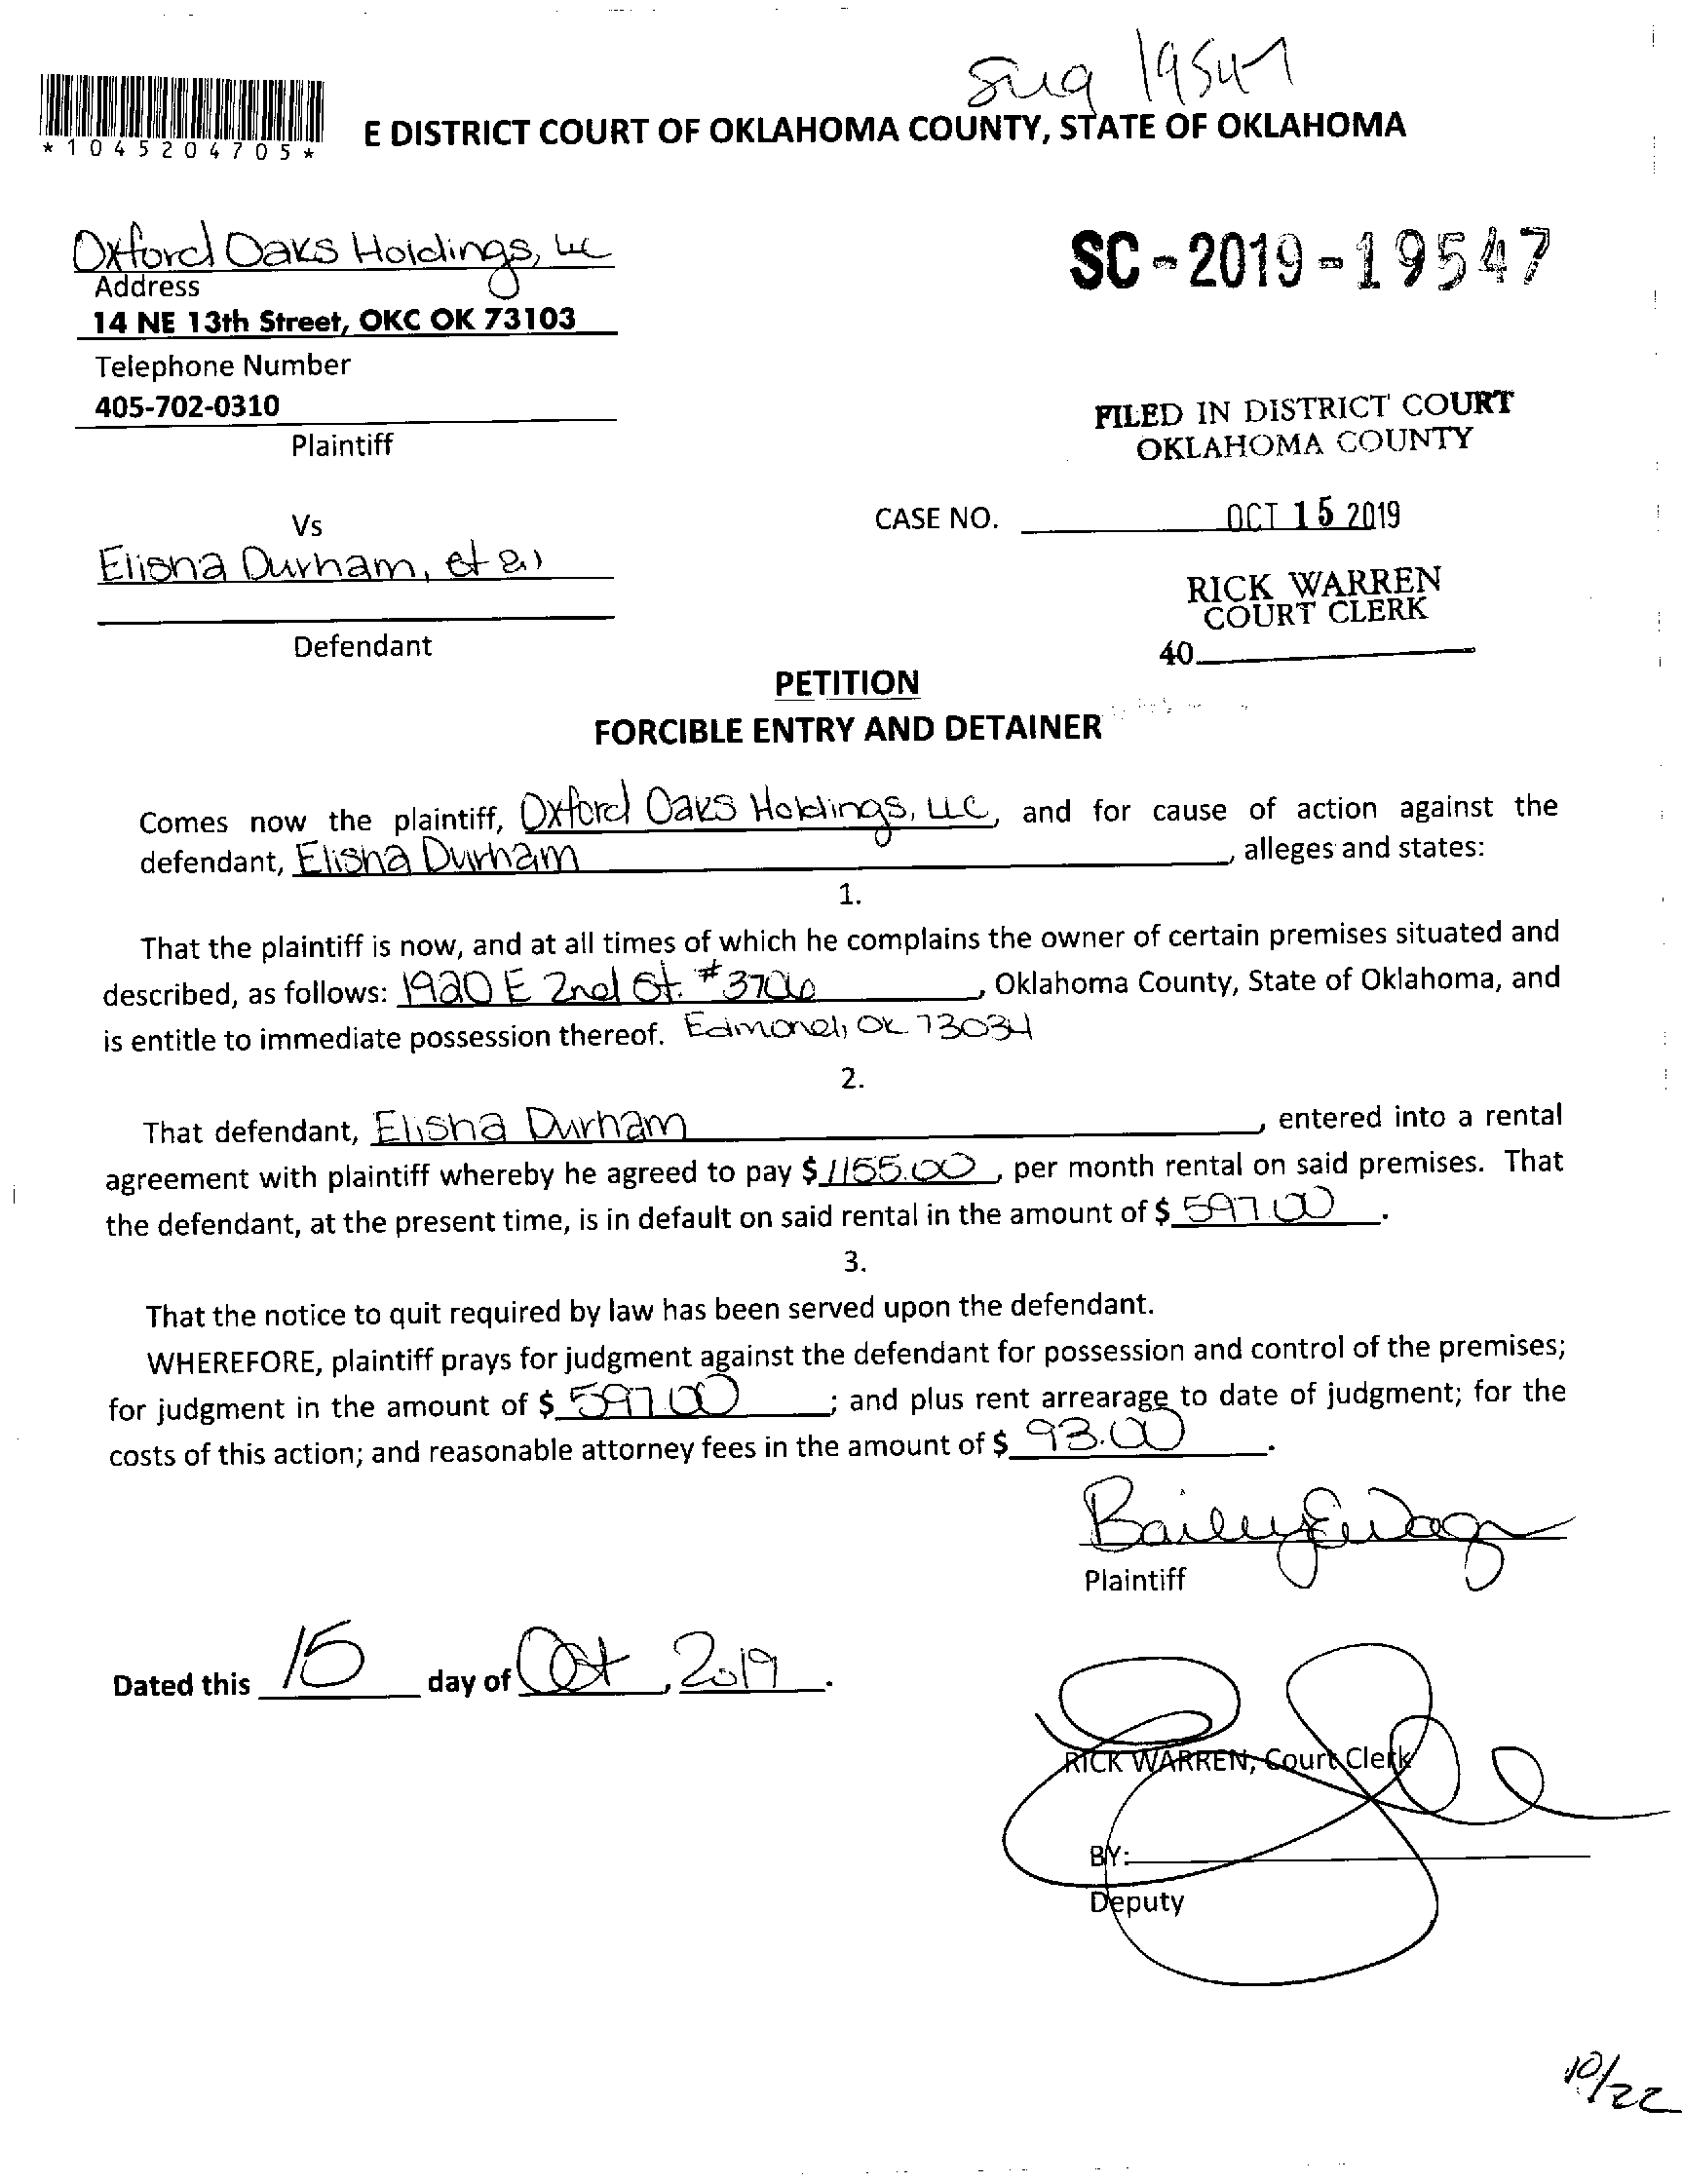 19547
*1045204705*
E DISTRICT COURT OF OKLAHOMA COUNTY, STATE OF OKLAHOMA
Oxford Oaks Holdings, LLC
Address
14 NE 13th Street, OKC OK 73103
Telephone Number
405-702-0310
Plaintiff
SC-2019-19547
FILED IN DISTRICT COURT
OKLAHOMA COUNTY
Vs
CASE NO. OCT 15 2019
Elisha Durham, et al
Defendant
RICK WARREN
COURT CLERK
40
PETITION
FORCIBLE ENTRY AND DETAINER
Comes now the plaintiff, Oxford Oaks Holdings, LLC, and for cause of action against the
defendant, Elisha Durham, alleges and states:
1.
That the plaintiff is now, and at all times of which he complains the owner of certain premises situated and
described, as follows: 1920 E 2nd St. #3706, Oklahoma County, State of Oklahoma, and
is entitle to immediate possession thereof. Edmond, OK 73034
2.
That defendant, Elisha Durham, entered into a rental
agreement with plaintiff whereby he agreed to pay $1155.00, per month rental on said premises. That
the defendant, at the present time, is in default on said rental in the amount of $ 597.00.
3.
That the notice to quit required by law has been served upon the defendant.
WHEREFORE, plaintiff prays for judgment against the defendant for possession and control of the premises;
for judgment in the amount of $ 597.00; and plus rent arrearage to date of judgment; for the
costs of this action; and reasonable attorney fees in the amount of $ 93.00.
Bailey
Plaintiff
Dated this 15 day of Oct, 2019.
RICK WARREN, Court Clerk
BY:
Deputy
10/22